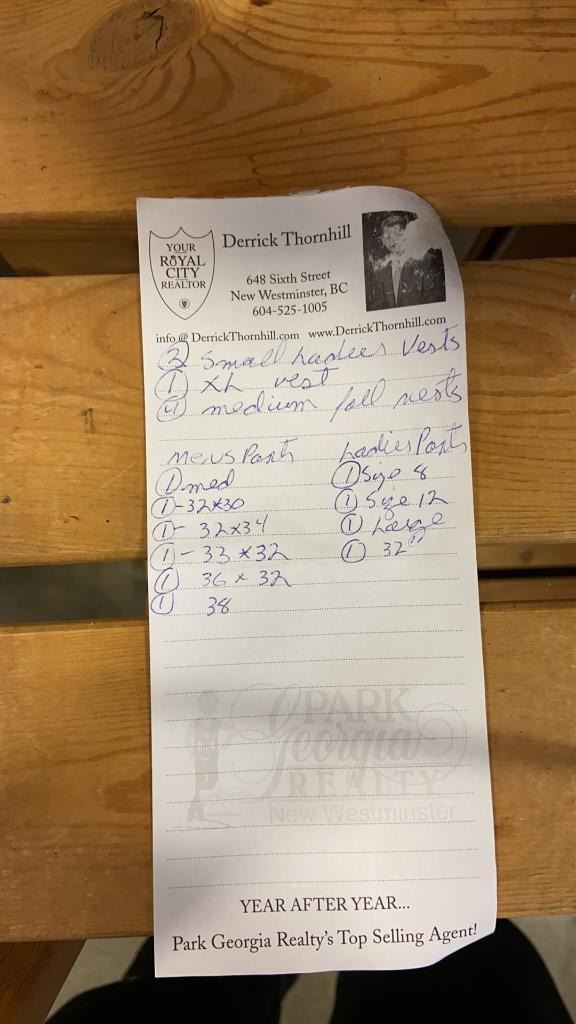 YOUR
ROYAL
CITY
REALTOR
Derrick Thornhill
648 Sixth Street
New Westminster, BC
604-525-1005
info@DerrickThornhill.com www.DerrickThornhill.com
② small Ladies Vests
① XL vest
④ medium fall vests
Mens Pants
① med
① - 32x30
① - 32x34
① - 33x32
① 36 x 32
① 38
Ladies Pants
① Size 8
① Size 12
① Large
① 32"
PARK
Georgia
REALTY
New Westminster
YEAR AFTER YEAR...
Park Georgia Realty's Top Selling Agent!